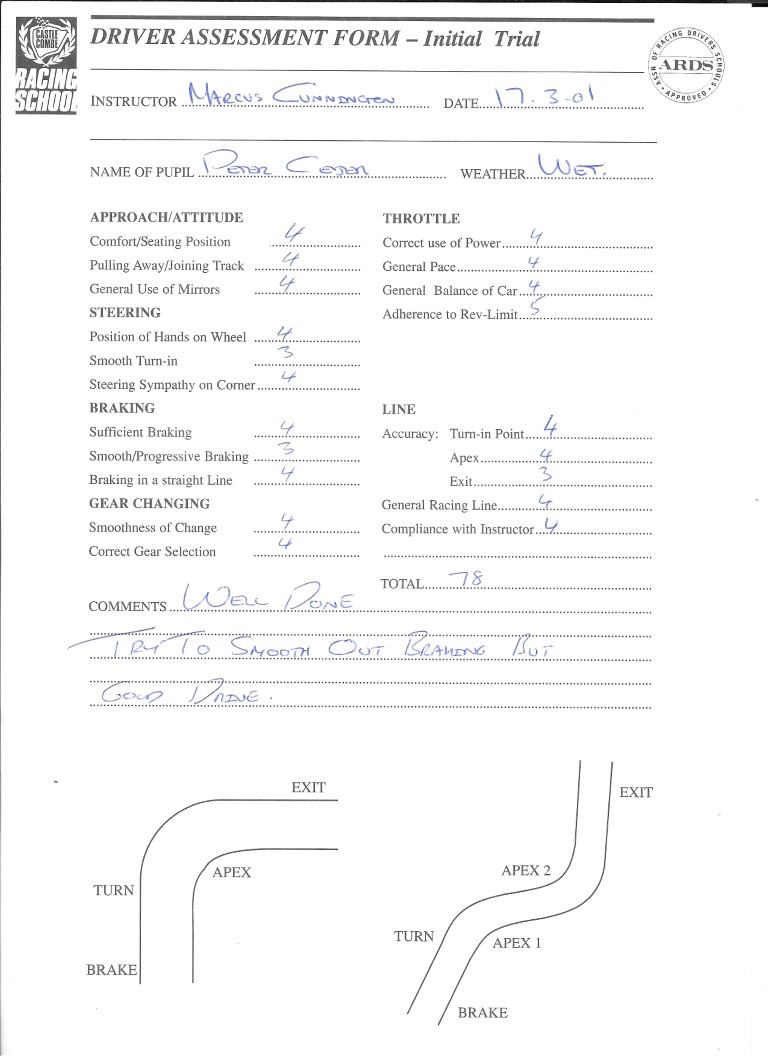 CASTLE COMBE
RACING SCHOOL
DRIVER ASSESSMENT FORM – Initial Trial
ASSN OF RACING DRIVERS SCHOOLS • ARDS • APPROVED
INSTRUCTOR MARCUS CUNNINGTON DATE 17.3-01
NAME OF PUPIL PETER WEATHER WET.
APPROACH/ATTITUDE
Comfort/Seating Position 4
Pulling Away/Joining Track 4
General Use of Mirrors 4
STEERING
Position of Hands on Wheel 4
Smooth Turn-in 3
Steering Sympathy on Corner 4
BRAKING
Sufficient Braking 4
Smooth/Progressive Braking 3
Braking in a straight Line 4
GEAR CHANGING
Smoothness of Change 4
Correct Gear Selection 4
THROTTLE
Correct use of Power 4
General Pace 4
General Balance of Car 4
Adherence to Rev-Limit 5
LINE
Accuracy: Turn-in Point 4
Apex 4
Exit 3
General Racing Line 4
Compliance with Instructor 4
TOTAL 78
COMMENTS WELL DONE
TRY TO SMOOTH OUT BRAKING BUT
GOOD DRIVE.
EXIT
APEX
TURN
BRAKE
EXIT
APEX 2
TURN
APEX 1
BRAKE